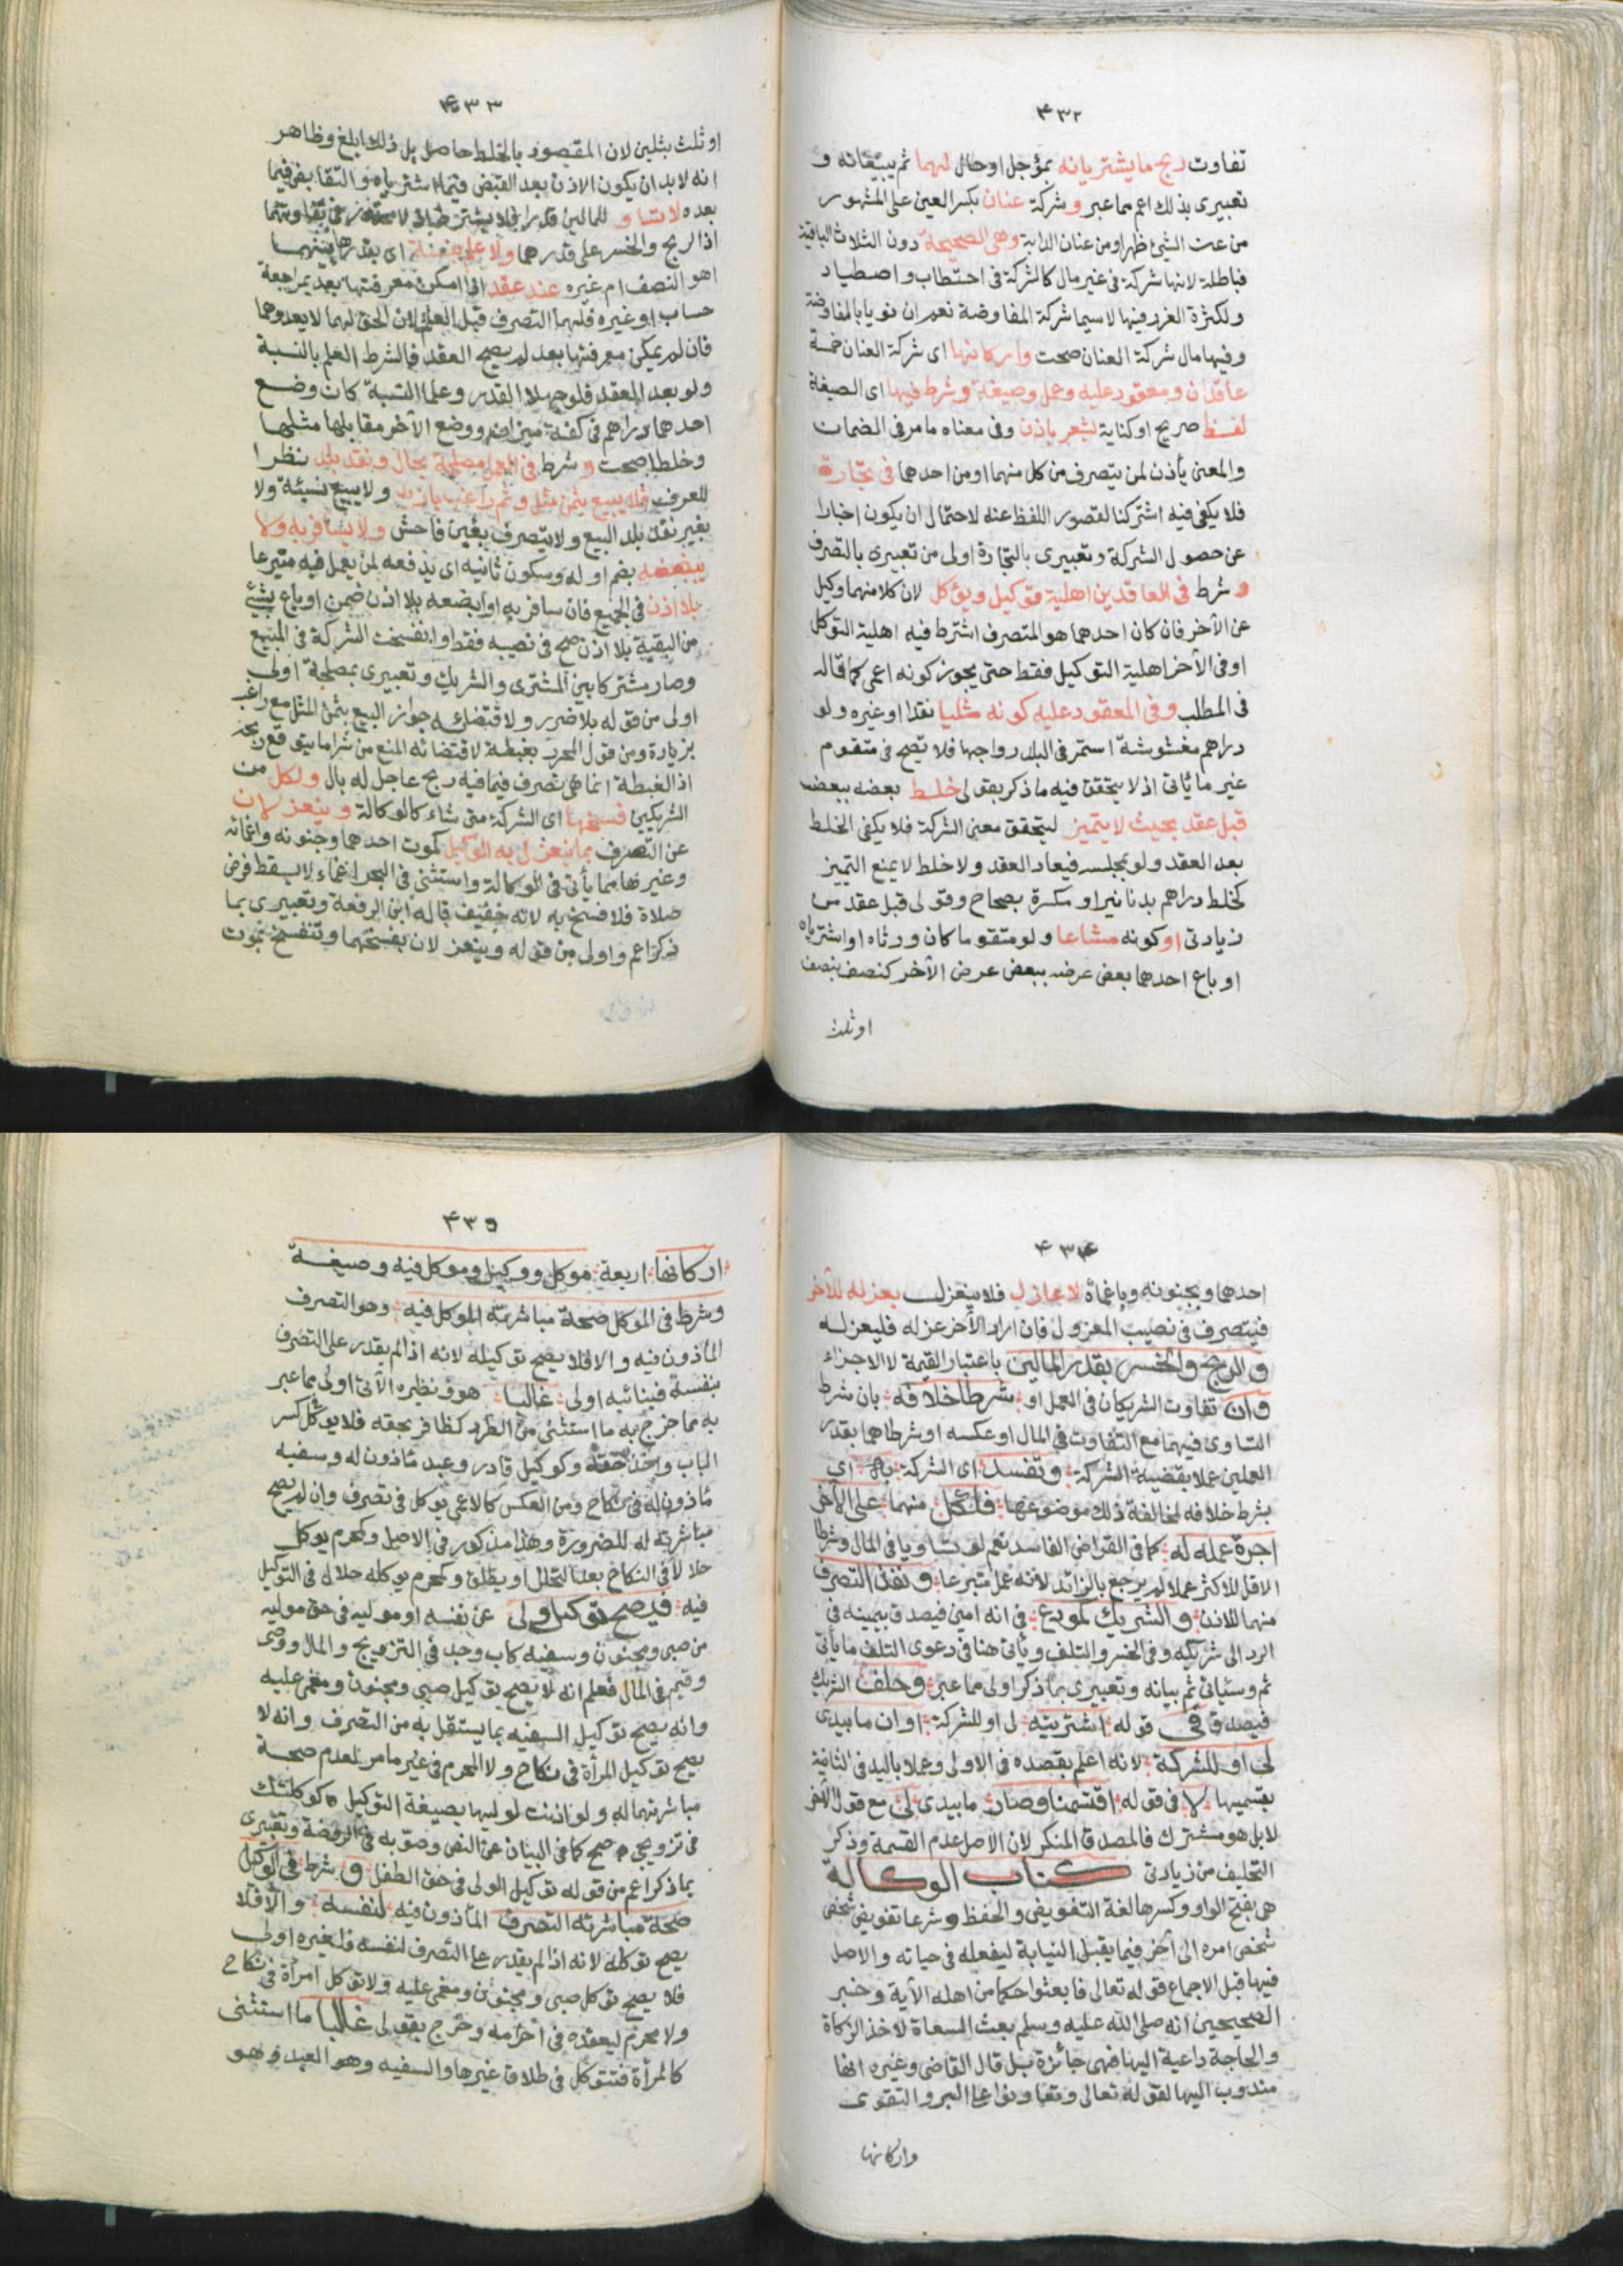 ٤٣٢
تفاوت ربح ما يشتريانه بمؤجل او حال لهما ثم يبيعانه و
تعبيرى بذلك اعم مما عبر وشركة عنان بكسر العين على المشهور
من عن الشئ ظهر او من عنان الدابة وهى الصحيحة دون الثلاث الباقية
فباطلة لانها شركة فى غير مال كالشركة فى احتطاب واصطياد
ولكثرة الغرر فيها لا سيما شركة المفاوضة نعم ان نويا بالمفاوضة
وفيها مال شركة العنان صحت واركانها اى شركة العنان خمسة
عاقدان ومعقود عليه وعمل وصيغة وشرط فيها اى الصيغة
لفظ صريح او كناية يشعر باذن وفى معناه ما مر فى الضمان
والمعنى ياذن لمن يتصرف من كل منهما او من احدهما فى تجارة
فلا يكفى فيه اشتركنا لقصور اللفظ عنه لاحتمال ان يكون اخبارا
عن حصول الشركة وتعبيرى بالتجارة اولى من تعبيرى بالتصرف
وشرط فى العاقدين اهلية توكيل وتوكل لان كلا منهما وكيل
عن الآخر فان كان احدهما هو المتصرف اشترط فيه اهلية التوكل
او فى الآخر اهلية التوكيل فقط حتى يجوز كونه اعمى كما قاله
فى المطلب وفى المعقود عليه كونه مثليا نقدا او غيره ولو
دراهم مغشوشة استمر فى البلد رواجها فلا تصح فى متقوم
غير ما يأتى اذ لا يتحقق فيه ما ذكر بقولى خلط بعضه ببعض
قبل عقد بحيث لا يتميز ليتحقق معنى الشركة فلا يكفى الخلط
بعد العقد ولو بمجلسه فيعاد العقد ولا خلط لا يمنع التمييز
كخلط دراهم بدنانير او مكسرة بصحاح وقولى قبل عقد من
زيادتى او كونه مشاعا ولو متقوما كان ورثاه او اشترياه
او باع احدهما بعض عرضه ببعض عرض الآخر كنصف بنصف
او ثلث
٤٣٣
او ثلث بثلثين لان المقصود بالخلط حاصل بل ذلك ابلغ وظاهر
انه لا بد ان يكون الاذن بعد القبض فيما اشترياه والتقابض فيما
بعده لا تساو للمالين قدرا فلا يشترط اذ لا محذور فى تفاوتهما
اذ الربح والخسر على قدرهما ولا علم بنسبة اى بقدرها بينهما
اهو النصف ام غيره عند عقد اذا امكن معرفتها بعد بمراجعة
حساب او غيره فلهما التصرف قبل العلم لان الحق لهما لا يعدوهما
فان لم يمكن معرفتها بعد لم يصح العقد فالشرط العلم بالنسبة
ولو بعد العقد فلو جهلا القدر وعلما النسبة كان وضع
احدهما دراهم فى كفة ميزان ووضع الآخر مقابلها مثلها
وخلطا صحت و شرط فى العمل مصلحة بحال ونقد بلد نظرا
للعرف فلا يبيع بثمن مثل وثم راغب بازيد ولا يبيع نسيئة ولا
بغير نقد بلد البيع ولا يتصرف بغبن فاحش ولا يسافر به ولا
يبضعه بضم اوله وسكون ثانيه اى يدفعه لمن يعمل فيه متبرعا
بلا اذن فى الجميع فان سافر به او ابضعه بلا اذن ضمن او باع بشئ
من البقية بلا اذن صح فى نصيبه فقط وانفسخت الشركة فى المبيع
وصار مشتركا بين المشترى والشريك وتعبيرى بمصلحة اولى
اولى من قوله بلا ضرر ولاقتضائه جواز البيع بثمن المثل مع راغب
بزيادة ومن قول المحرر بغبطة لاقتضائه المنع من شرا ما يتوقع ربحه
اذ الغبطة انما هى تصرف فيما فيه ربح عاجل له بال ولكل من
الشريكين فسخها اى الشركة متى شاء كالوكالة وينعزلان
عن التصرف بما ينعزل به الوكيل كموت احدهما وجنونه واغمائه
وغيرها مما يأتى فى الوكالة واستثنى فى البحر اغماء لا يسقط فرض
صلاة فلا فسخ به لانه خفيف قاله ابن الرفعة وتعبيرى بما
ذكر اعم واولى من قوله وينعزلان بفسخهما وتنفسخ بموت
٤٣٤
احدهما وبجنونه وباغمائه لا عازل فلا ينعزل بعزله للآخر
فيتصرف فى نصيب المعزول فان اراد الآخر عزله فليعزله
والربح والخسر بقدر المالين باعتبار القيمة لا الاجزاء
وان تفاوت الشريكان فى العمل او شرطا خلافه بان شرطا
التساوى فيهما مع التفاوت فى المال او عكسه او شرطاهما بقدر
العملين عملا بقضية الشركة وتفسد اى الشركة به اى
بشرط خلافه لمخالفة ذلك موضوعها فلكل منهما على الآخر
اجرة عمله له كما فى القراض الفاسد نعم لو تساويا فى المال وشرطا
الاقل للاكثر عملا لم يرجع بالزائد لانه عمل متبرعا ونفذ التصرف
منهما للاذن والشريك كمودع فى انه امين فيصدق بيمينه فى
الرد الى شريكه وفى الخسر والتلف ويأتى هنا فى دعوى التلف ما يأتى
ثم وسيأتى ثم بيانه وتعبيرى بما ذكر اولى مما عبر وحلف الشريك
فيصدق فى قوله اشتريته لى او للشركة او ان ما بيدى
لى او للشركة لانه اعلم بقصده فى الاولى وعملا باليد فى الثانية
بقسميها لا فى قوله اقتسمنا وصار ما بيدى لى مع قول الآخر
لا بل هو مشترك فالمصدق المنكر لان الاصل عدم القسمة وذكر
التحليف من زيادتى كتاب الوكالة
هى بفتح الواو وكسرها لغة التفويض والحفظ وشرعا تفويض شخص
شخص امره الى آخر فيما يقبل النيابة ليفعله فى حياته والاصل
فيها قبل الاجماع قوله تعالى فابعثوا حكما من اهله الآية وخبر
الصحيحين انه صلى الله عليه وسلم بعث السعاة لاخذ الزكاة
والحاجة داعية اليها فهى جائزة بل قال القاضى وغيره انها
مندوب اليها لقوله تعالى وتعاونوا على البر والتقوى
واركانها
٤٣٥
اركانها اربعة موكل ووكيل وموكل فيه وصيغة
وشرط فى الموكل صحة مباشرته الموكل فيه وهو التصرف
المأذون فيه والا فلا يصح توكيله لانه اذا لم يقدر على التصرف
بنفسه فبنائبه اولى غالبا هو ونظيره الآتى اولى مما عبر
به مما خرج به ما استثنى من الطرد كظافر بحقه فلا يوكل كسر
الباب واخذ حقه وكوكيل قادر وعبد مأذون له وسفيه
مأذون له فى نكاح ومن العكس كالاعمى يوكل فى تصرف وان لم يصح
مباشرته له للضرورة وهذا مذكور فى الاصل وكمحرم يوكل
حلالا فى النكاح بعد التحلل او يطلق وكمحرم يوكله حلال فى التوكيل
فيه فيصح توكيل ولى عن نفسه او موليه فى حق موليه
من صبى ومجنون وسفيه كاب وجد فى التزويج والمال ووصى
وقيم فى المال فعلم انه لا يصح توكيل صبى ومجنون ومغمى عليه
وانه يصح توكيل السفيه بما يستقل به من التصرف وانه لا
يصح توكيل المرأة فى نكاح ولا المحرم فى غير ما مر لعدم صحة
مباشرتهما له ولو اذنت لوليها بصيغة التوكيل كوكلتك
فى تزويجى صح كما فى البيان عن النص وصوبه فى الروضة وتعبيرى
بما ذكر اعم من قوله توكيل الولى فى حق الطفل و شرط فى الوكيل
صحة مباشرته التصرف المأذون فيه لنفسه والا فلا
يصح توكله لانه اذا لم يقدر على التصرف لنفسه فلغيره اولى
فلا يصح توكل صبى ومجنون ومغمى عليه ولا توكل امرأة فى نكاح
ولا محرم ليعقده فى احرامه وخرج بقولى غالبا ما استثنى
كالمرأة فتتوكل فى طلاق غيرها والسفيه وهو العبد وهو